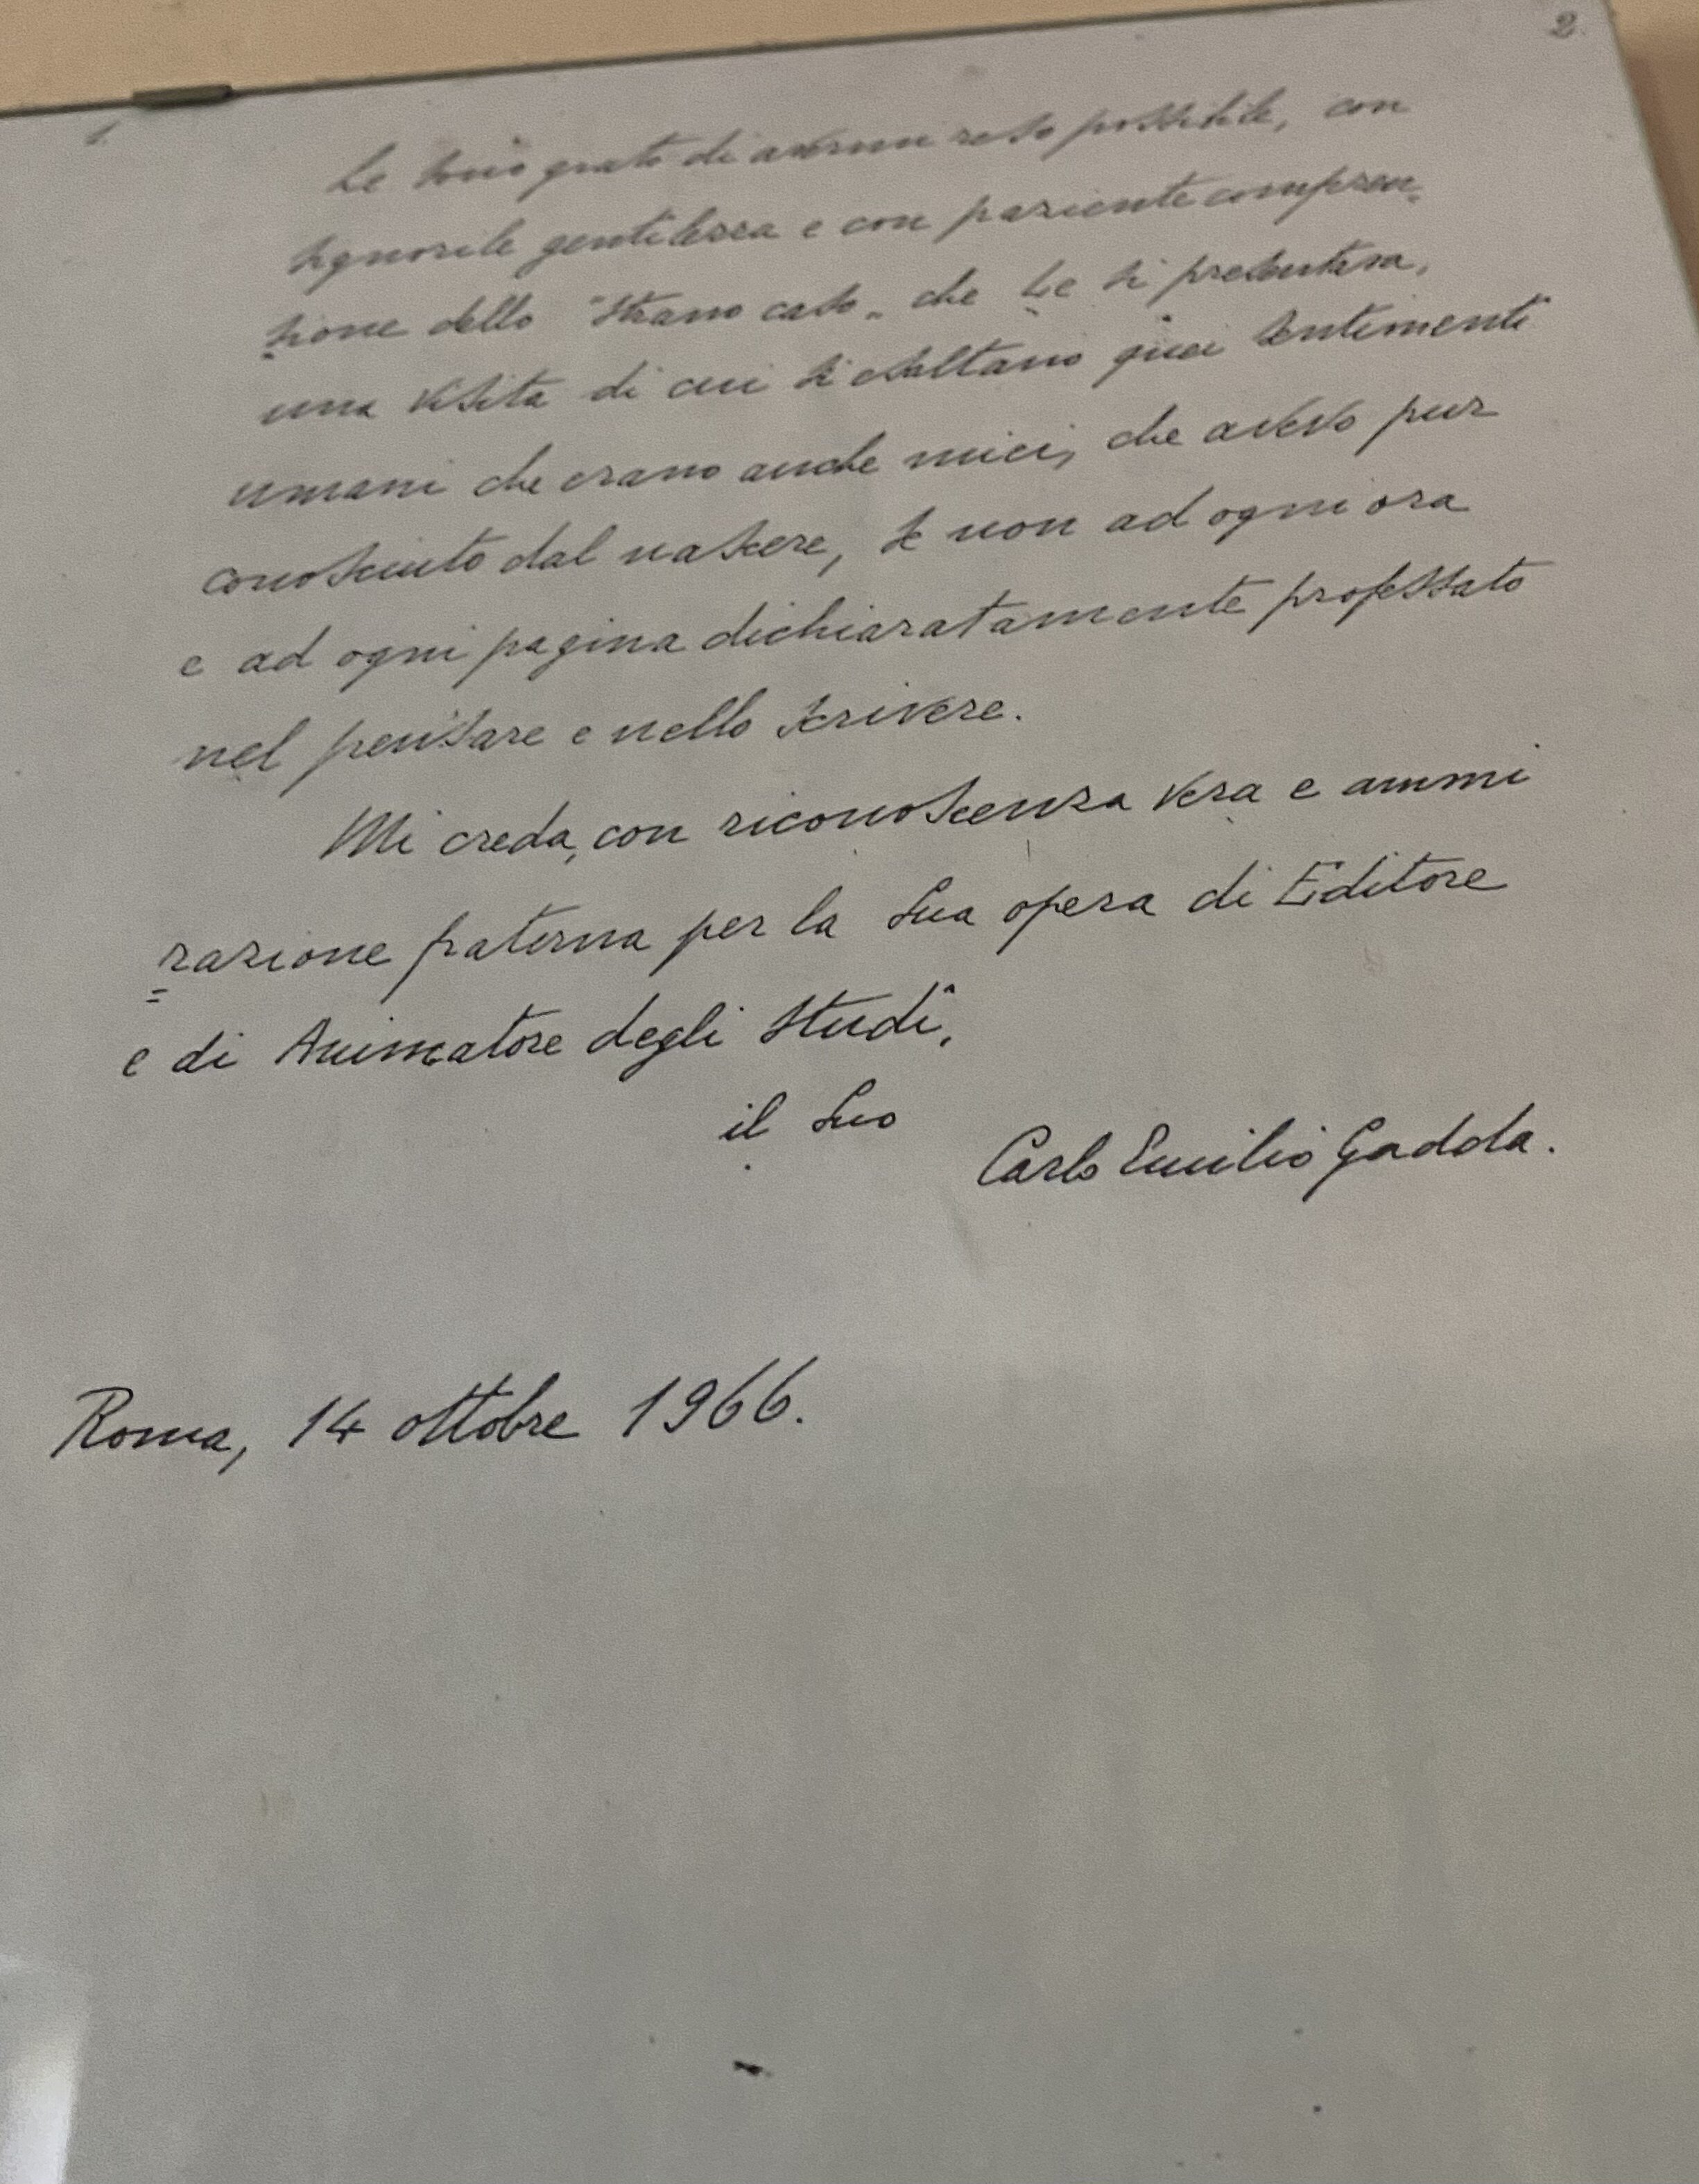 2.
1.
Le sono grato di avermi reso possibile, con
signorile gentilezza e con paziente compren-
sione dello "strano caso„ che Le si presentava,
una visita di cui si esaltano quei sentimenti
umani che erano anche miei, che avevo pur
conosciuto dal nascere, se non ad ogni ora
e ad ogni pagina dichiaratamente professato
nel pensare e nello scrivere.
Mi creda, con riconoscenza vera e ammi
=razione fraterna per la Sua opera di Editore
e di Animatore degli studî,
il Suo
Carlo Emilio Gadda.
Roma, 14 ottobre 1966.